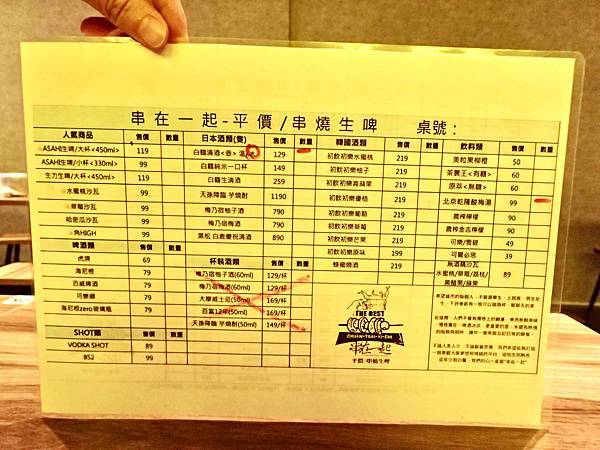 串在一起-平價/串燒生啤 桌號:
人氣商品 售價 數量
ASAHI生啤/大杯<450ml> 119
ASAHI生啤/小杯<330ml> 99
生力生啤/大杯<450ml> 119
水蜜桃沙瓦 99
草莓沙瓦 99
哈密瓜沙瓦 99
角HIGH 99
啤酒類 售價 數量
虎牌 69
海尼根 79
百威啤酒 79
可樂娜 79
海尼根zero玻璃瓶 79
SHOT類 售價 數量
VODKA SHOT 89
B52 99
日本酒類(隻) 售價 數量
白鶴清酒<壺> 129
白鶴純米一口杯 149
白鶴生清酒 259
天孫降臨 芋燒酎 1190
梅乃宿柚子酒 790
梅乃宿梅酒 790
黑松 白鹿慶祝清酒 890
杯裝酒類 售價 數量
梅乃宿柚子酒(60ml) 129/杯
梅乃宿梅酒(60ml) 129/杯
大摩威士忌(50ml) 169/杯
百富12年(50ml) 169/杯
天孫降臨 芋燒酎(50ml) 149/杯
韓國酒類 售價 數量
初飲初樂水蜜桃 219
初飲初樂柚子 219
初飲初樂青蘋果 219
初飲初樂優格 219
初飲初樂葡萄 219
初飲初樂草莓 219
初飲初樂芒果 219
初飲初樂原味 199
蜂蜜燒酒 219
飲料類 售價 數量
美粒果柳橙 50
茶裏王<有糖> 60
原萃<無糖> 60
北京乾隆酸梅湯 99
農榨檸檬 90
農榨金吉檸檬 90
可樂/雪碧 49
可爾必思 39
無酒精沙瓦
水蜜桃/草莓/荔枝/
黑醋栗/蘋果 89
THE BEST
CHUAN-TSAI-YI-CHI
串在一起
平價/串燒生啤